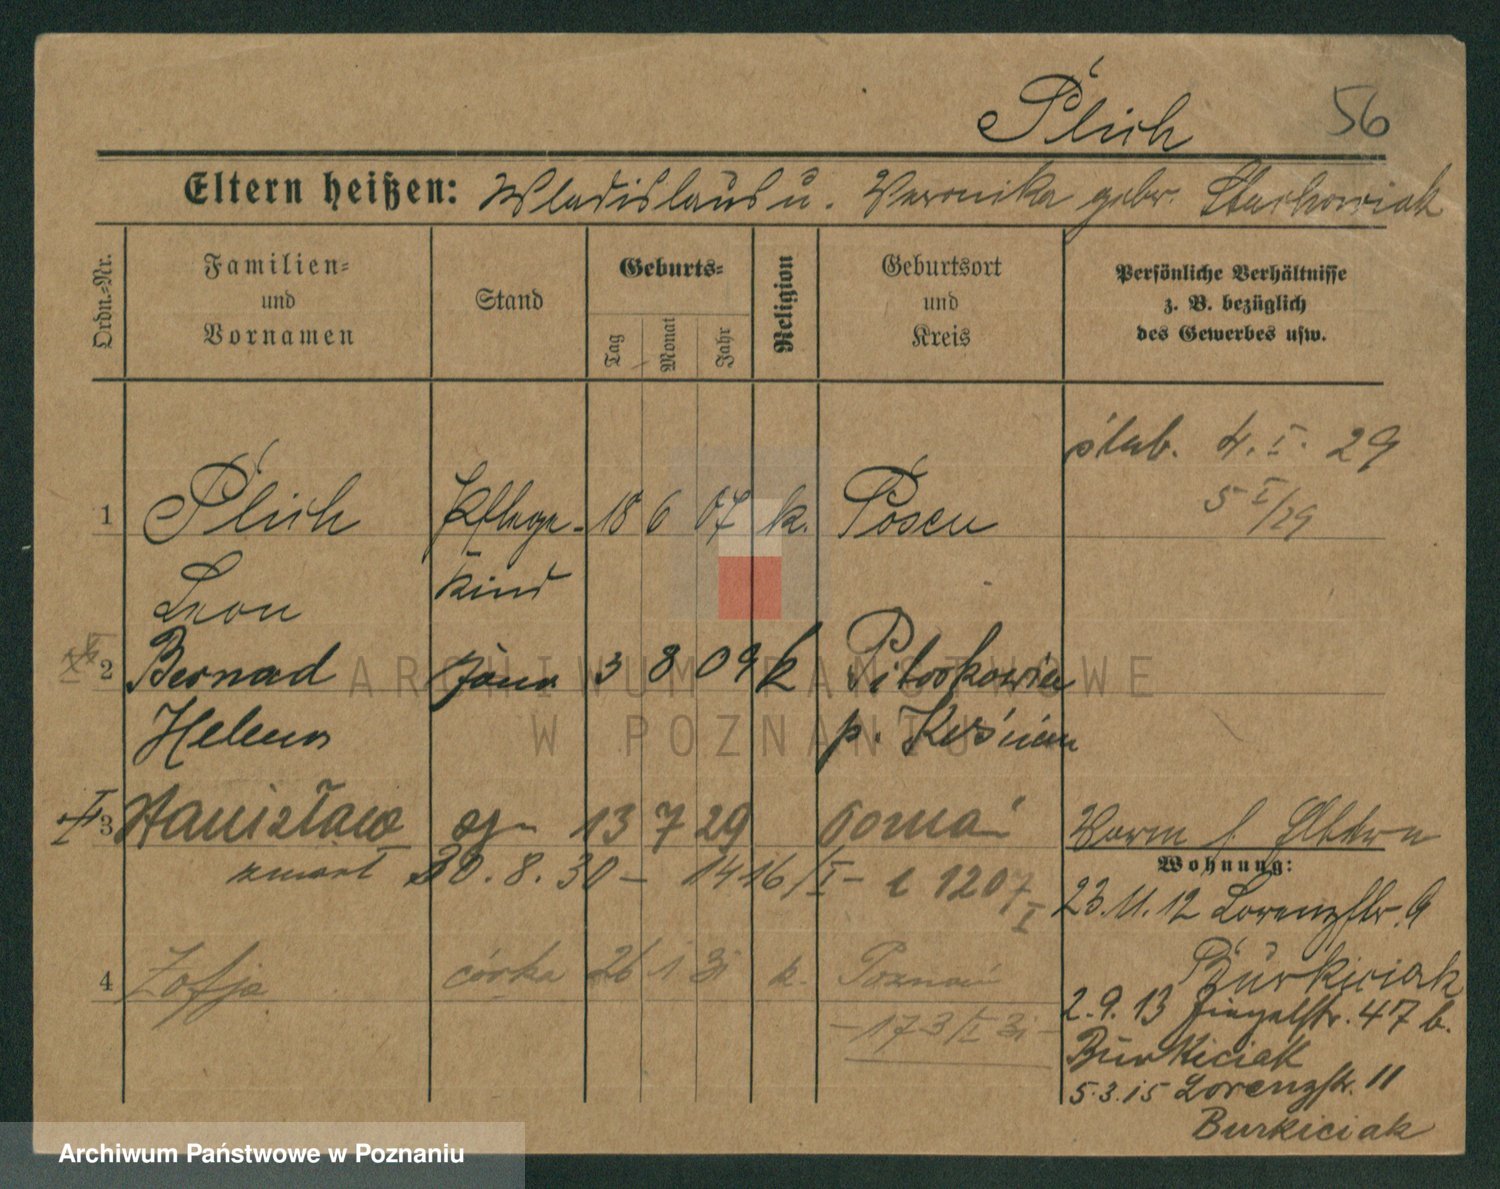 Plich 56
Eltern heißen: Wladislaus u. Veronika gebr. Stachowiak
Ordn.-Nr.
Familien-
und
Vornamen
Stand
Geburts-
Tag
Monat
Jahr
Religion
Geburtsort
und
Kreis
Persönliche Verhältnisse
z. B. bezüglich
des Gewerbes usw.
ślub. 4. I. 29
5 I/29
1 Plich Pflege- 18 6 07 k. Posen
Leon kind
2 Bernad żona 3 8 09 k
Helena p.
3 Stanisław 13 7 29
Wohnung:
zmarł 30. 8. 30 - 1416/I - 1207
I
23.11.12 Lorenzstr. 9
Burkiciak
4 Zofja córka 26 1 31 k. Poznań
2.9.13 Ziegelstr. 47 b.
- 173/II 31 -
Burkiciak
5.3.15 Lorenzstr. 11
Burkiciak
ARCHIWUM PAŃSTWOWE
W POZNANIU
Archiwum Państwowe w Poznaniu